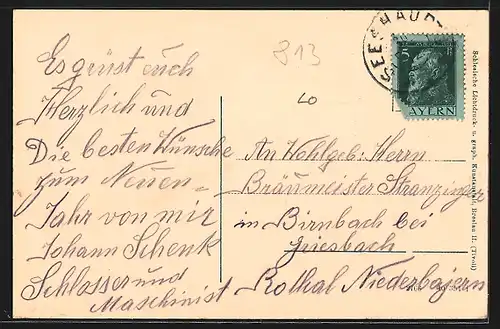 813
SEESHAUPT
5
BAYERN
Es grüst euch
Herzlich und
Die besten Wünsche
zum Neuen-
Jahr von mir
Johann Schenk
Schlosser und
Maschinist
An Wohlgeb: Herrn
Bräumeister Stranzinger
in Birnbach bei
Griesbach
Rothal Niederbajern
Schlesische Lichtdruck u. graph. Kunstanstalt, Breslau II. (Tivoli)